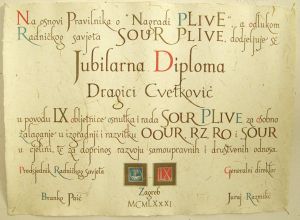 Na osnovi Pravilnika o "Nagradi PLIVE" a odlukom
Radničkog savjeta SOUR PLIVE, dodjeljuje se
Jubilarna Diploma
Dragici Cvetković
u povodu IX objetnice osnutka i rada SOUR PLIVE za osobno
zalaganje u izgradnji i razvitku OOUR RZ RO i SOUR
u cjelini, te za doprinos razvoju samoupravnih i društvenih odnosa.
Predsjednik Radničkog savjeta
IX
Generalni direktor
Branko
Zagreb
Juraj
MCMLXXXI